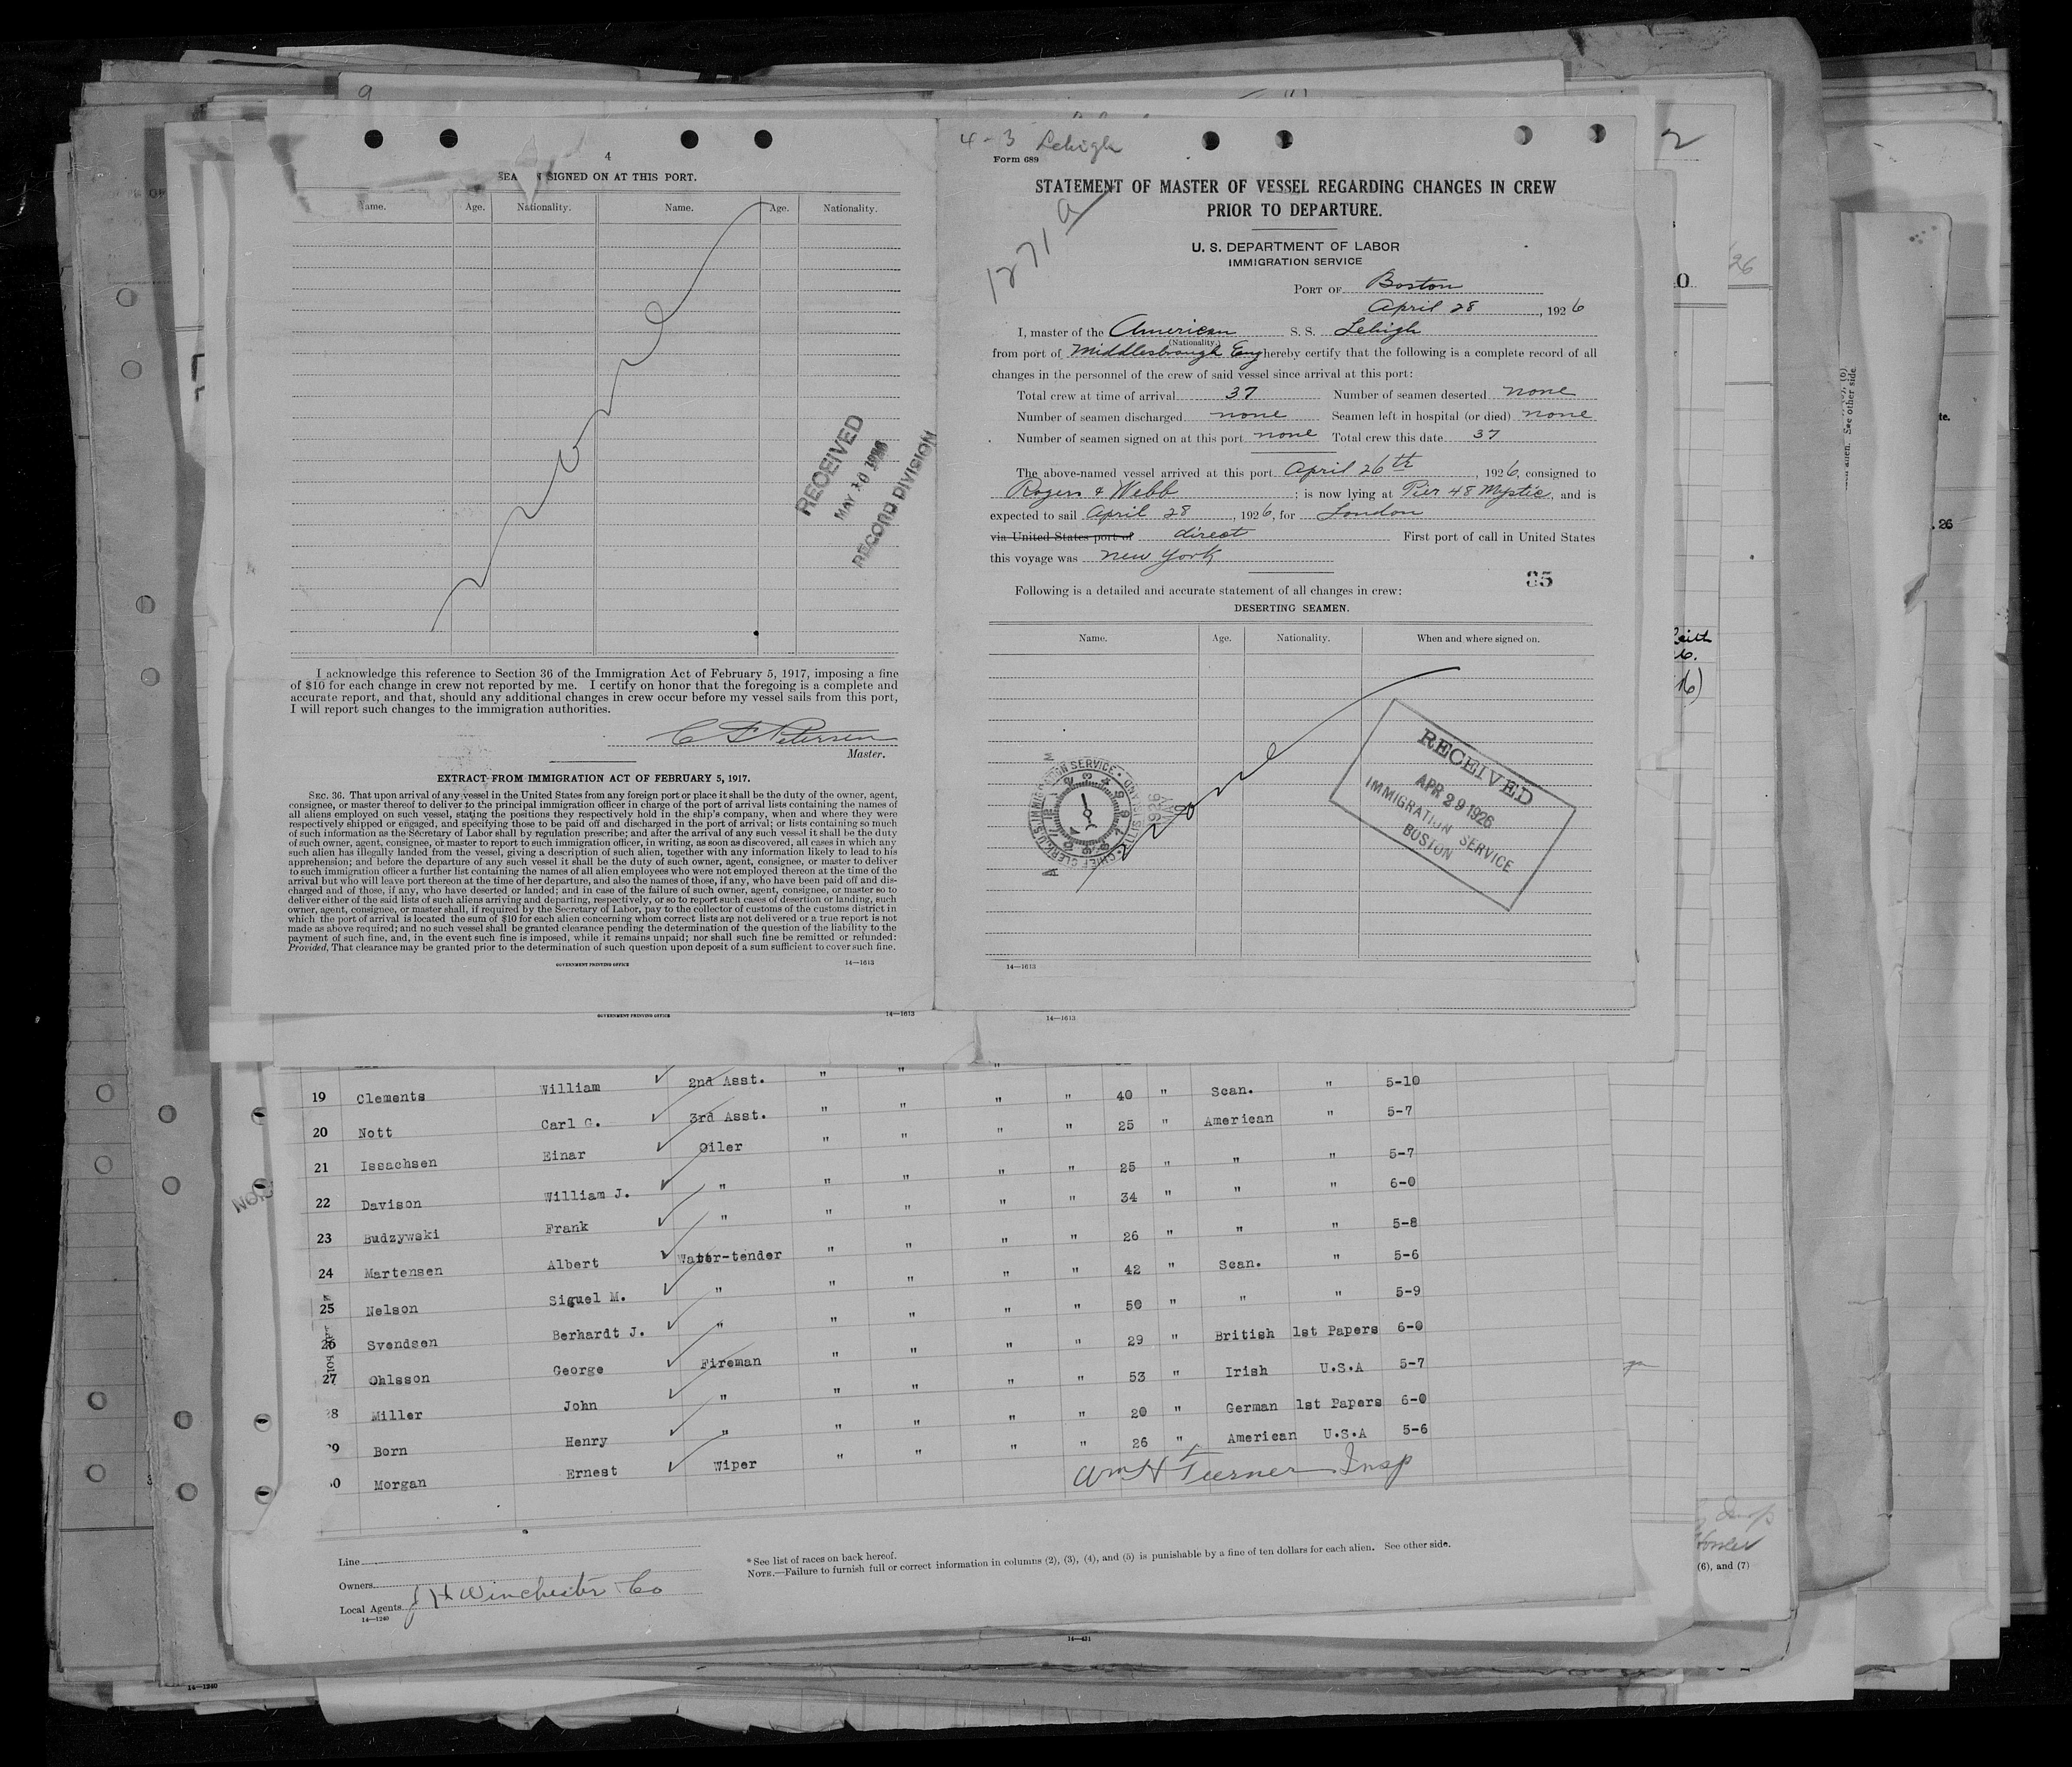 4
SEAMEN SIGNED ON AT THIS PORT.
Name. Age. Nationality. Name. Age. Nationality.
none
RECEIVED
MAY 20 1926
RECORD DIVISION
I acknowledge this reference to Section 36 of the Immigration Act of February 5, 1917, imposing a fine
of $10 for each change in crew not reported by me. I certify on honor that the foregoing is a complete and
accurate report, and that, should any additional changes in crew occur before my vessel sails from this port,
I will report such changes to the immigration authorities.
C F Petersen
Master.
EXTRACT FROM IMMIGRATION ACT OF FEBRUARY 5, 1917.
SEC. 36. That upon arrival of any vessel in the United States from any foreign port or place it shall be the duty of the owner, agent,
consignee, or master thereof to deliver to the principal immigration officer in charge of the port of arrival lists containing the names of
all aliens employed on such vessel, stating the positions they respectively hold in the ship's company, when and where they were
respectively shipped or engaged, and specifying those to be paid off and discharged in the port of arrival; or lists containing so much
of such information as the Secretary of Labor shall by regulation prescribe; and after the arrival of any such vessel it shall be the duty
of such owner, agent, consignee, or master to report to such immigration officer, in writing, as soon as discovered, all cases in which any
such alien has illegally landed from the vessel, giving a description of such alien, together with any information likely to lead to his
apprehension; and before the departure of any such vessel it shall be the duty of such owner, agent, consignee, or master to deliver
to such immigration officer a further list containing the names of all alien employees who were not employed thereon at the time of the
arrival but who will leave port thereon at the time of her departure, and also the names of those, if any, who have been paid off and dis-
charged and of those, if any, who have deserted or landed; and in case of the failure of such owner, agent, consignee, or master so to
deliver either of the said lists of such aliens arriving and departing, respectively, or so to report such cases of desertion or landing, such
owner, agent, consignee, or master shall, if required by the Secretary of Labor, pay to the collector of customs of the customs district in
which the port of arrival is located the sum of $10 for each alien concerning whom correct lists are not delivered or a true report is not
made as above required; and no such vessel shall be granted clearance pending the determination of the question of the liability to the
payment of such fine, and, in the event such fine is imposed, while it remains unpaid; nor shall such fine be remitted or refunded:
Provided, That clearance may be granted prior to the determination of such question upon deposit of a sum sufficient to cover such fine.
GOVERNMENT PRINTING OFFICE 14—1613
4-3 Lehigh
Form 689
1271 a
STATEMENT OF MASTER OF VESSEL REGARDING CHANGES IN CREW
PRIOR TO DEPARTURE.
U. S. DEPARTMENT OF LABOR
IMMIGRATION SERVICE
PORT OF Boston
April 28, 1926
I, master of the American S. S. Lehigh
(Nationality.)
from port of Middlesbrough Eng hereby certify that the following is a complete record of all
changes in the personnel of the crew of said vessel since arrival at this port:
Total crew at time of arrival 37 Number of seamen deserted none
Number of seamen discharged none Seamen left in hospital (or died) none
Number of seamen signed on at this port none Total crew this date 37
The above-named vessel arrived at this port April 26th, 1926, consigned to
Rogers & Webb; is now lying at Pier 48 Mystic, and is
expected to sail April 28, 1926, for London
via United States port of direct First port of call in United States
this voyage was New York
35
Following is a detailed and accurate statement of all changes in crew:
DESERTING SEAMEN.
Name. Age. Nationality. When and where signed on.
none
RECEIVED
APR 29 1926
IMMIGRATION SERVICE
BOSTON
14—1613
GOVERNMENT PRINTING OFFICE 14—1613 14—1613
19 Clements William 2nd Asst. " " " " 40 " Scan. " 5-10
20 Nott Carl G. 3rd Asst. " " " " 25 " American " 5-7
21 Issachsen Einar Oiler " " " " 25 " " " 5-7
22 Davison William J. " " " " " 34 " " " 6-0
23 Budzywski Frank " " " " " 26 " " " 5-8
24 Martensen Albert Water-tender " " " " 42 " Scan. " 5-6
25 Nelson Siguel M. " " " " " 50 " " " 5-9
26 Svendsen Berhardt J. " " " " " 29 " British 1st Papers 6-0
27 Ohlsson George Fireman " " " " 53 " Irish U.S.A 5-7
28 Miller John " " " " " 20 " German 1st Papers 6-0
29 Born Henry " " " " " 26 " American U.S.A 5-6
30 Morgan Ernest Wiper " " "
Wm H Turner Insp
Line
Owners
Local Agents J H Winchester Co
14—1240
* See list of races on back hereof.
NOTE.—Failure to furnish full or correct information in columns (2), (3), (4), and (5) is punishable by a fine of ten dollars for each alien. See other side.
(6), and (7)
14—1240